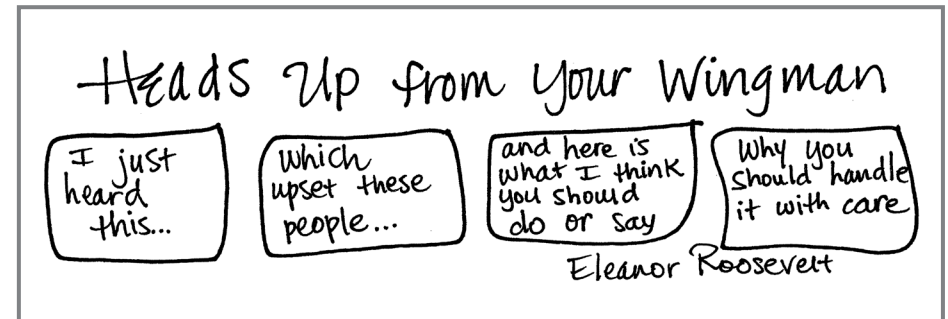 Heads Up from Your Wingman
I just
heard
this...
Which
upset these
people...
and here is
what I think
you should
do or say
Why you
should handle
it with care
Eleanor Roosevelt